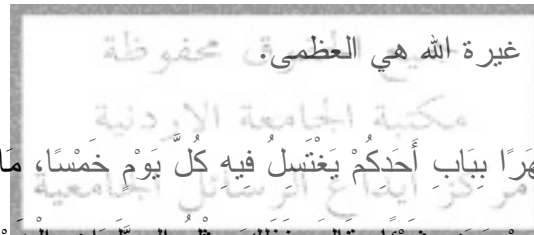 غيرة الله هي العظمى.
جميع الحقوق محفوظة
مكتبة الجامعة الاردنية
بِبَابِ أَحَدِكُمْ يَغْتَسِلُ فِيهِ كُلَّ يَوْمٍ خَمْسًا،
مركز ايداع الرسائل الجامعية